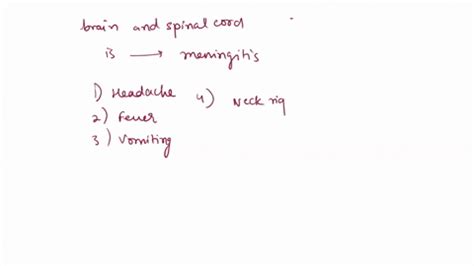 brain and spinal cord
is → meningitis
1) Headache 4) Neck rig
2) Fever
3) Vomiting